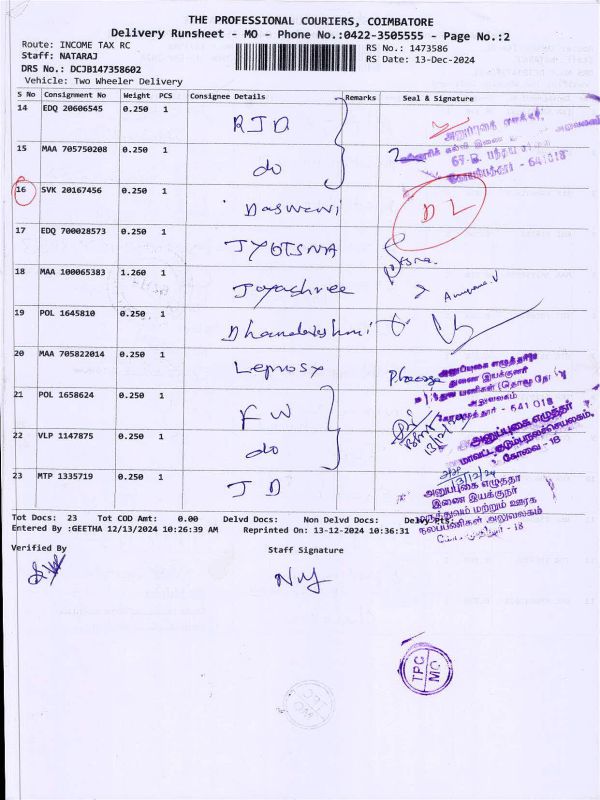 THE PROFESSIONAL COURIERS, COIMBATORE
Delivery Runsheet - MO - Phone No.:0422-3505555 - Page No.:2
Route: INCOME TAX RC
RS No.: 1473586
Staff: NATARAJ
RS Date: 13-Dec-2024
DRS No.: DCJB147358602
Vehicle: Two Wheeler Delivery
S No Consignment No Weight PCS Consignee Details Remarks Seal & Signature
14 EDQ 20606545 0.250 1 RJD
15 MAA 705750208 0.250 1 do 2
67-ஐ
- 641018
16 SVK 20167456 0.250 1 Daswani DL
17 EDQ 700028573 0.250 1 JYOTSNA
18 MAA 100065383 1.260 1 Jayashree
19 POL 1645810 0.250 1
20 MAA 705822014 0.250 1 Leprosy
அனுப்புகை எழுத்தர்
துணை இயக்குனர்
அலுவலகம்
- 641 018
21 POL 1658624 0.250 1 FW
22 VLP 1147875 0.250 1 do
13/12/24
அனுப்புகை எழுத்தர்
கோவை - 18
23 MTP 1335719 0.250 1 JD
13/12/24
அனுப்புகை எழுத்தர்
இணை இயக்குநர்
மருத்துவம் மற்றும் ஊரக
நலப்பணிகள் அலுவலகம்
- 18
Tot Docs: 23 Tot COD Amt: 0.00 Delvd Docs: Non Delvd Docs: Delvy Pts:
Entered By :GEETHA 12/13/2024 10:26:39 AM Reprinted On: 13-12-2024 10:36:31
Verified By Staff Signature
TPC
MO
TPC
MO